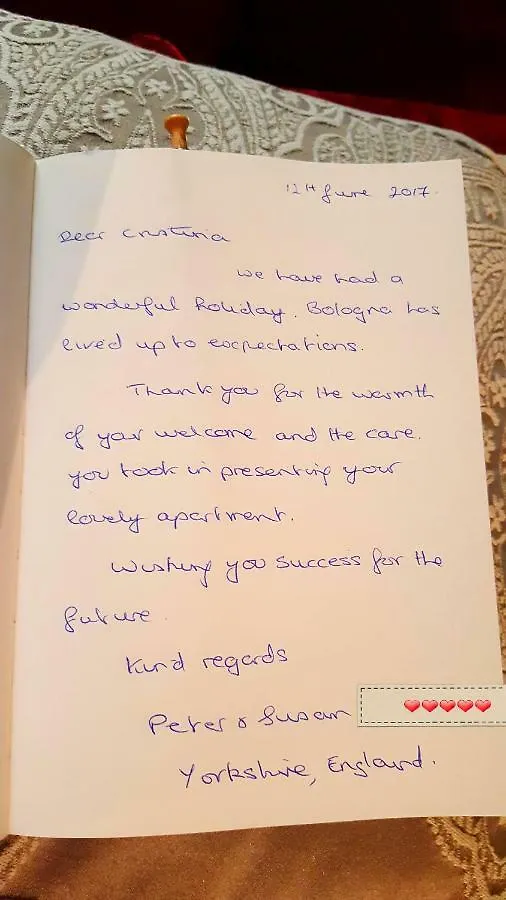 12th June 2017.
Dear Cristina
We have had a
wonderful holiday. Bologna has
lived up to expectations.
Thank you for the warmth
of your welcome and the care.
you took in presenting your
lovely apartment.
Wishing you success for the
future.
Kind regards
Peter & Susan
Yorkshire, England.